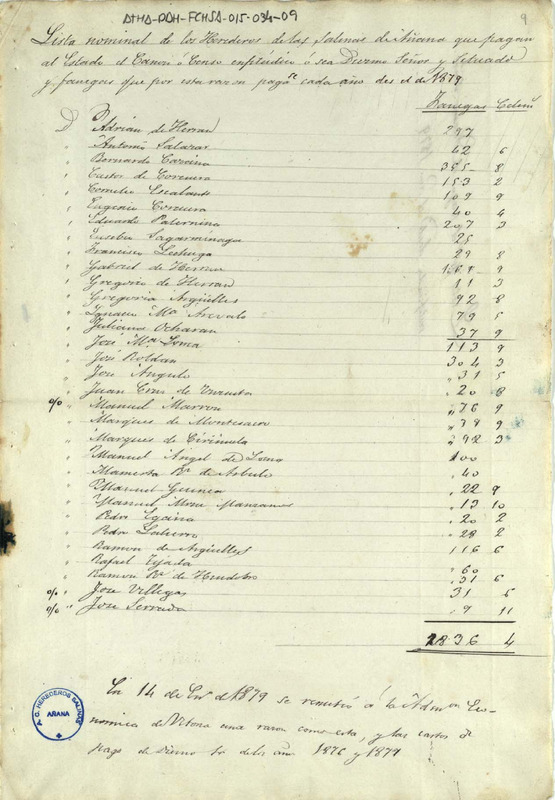 ATHA-DAH-FCHSA-015-034-09
9
Lista nominal de los Herederos de las Salinas de Añana que pagan
al Estado el Canon o Censo enfitéutico o sea Diezmo Señor y Situado
y fanegas que por esta razon paga cada año des el de 1879
Fanegas Celem
D. Adrian de Herran 297
" Antonio Salazar 42 6
" Bernardo 355 8
" Castor de Corcuera 153 2
" Cornelio Escalante 109 9
" Eugenio Corcuera 40 4
" Eduardo Paternina 207 3
" Eusebio Sagarminaga 25
" Francisco Lechuga 29 8
" Gabriel de Herran 9
" Gregorio de Herran 11 3
" Gregoria Argüelles 92 8
" Ignacio Mª Arevalo 79 5
" Juliana Ocharan 37 9
" José Mª Loma 113 9
" José Roldan 304 3
" José Angulo " 31 5
" Juan Cruz de " 20 8
o/o " Manuel Marron " 76 9
" Marques de Montesacro " 79 9
" Marques de Ciriñuela " 92 3
" Manuel Angel de Loma 100
" Mamerta Rz de Arbulo " 40
" Manuel Guinea " 22 9
" Manuel Manzanos " 13 10
" Pedro " 20 2
" Pedro " 28 2
" Ramon de Argüelles 116 6
" Rafael Tejada " 60
" Ramon Rz de Mendobro " 31 6
o/o " Jose Villegas 31 5
o/o " Jose Serrada " 9 11
2836 4
En 14 de Enº de 1879 se remitió á la Admon Eco-
nomica de Vitoria una razon como esta, y las cartas de
pago de Diezmo de los años 1876 y 1877
A. C. HEREDEROS SALINAS
AÑANA